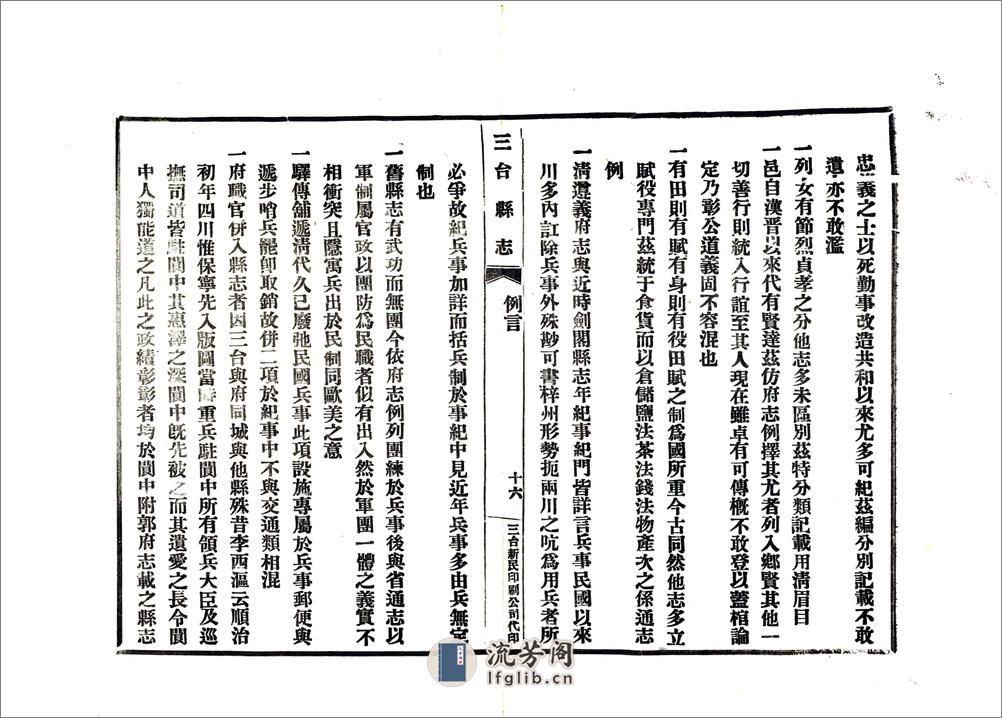 忠義之士以死勤事改造共和以來尤多可紀茲編分別記載不敢
遺亦不敢濫
一列女有節烈貞孝之分他志多未區別茲特分類記載用清眉目
一邑自漢晋以來代有賢達茲仿府志例擇其尤者列入鄉賢其他一
切善行則統入行誼至其人現在雖卓有可傳槪不敢登以蓋棺論
定乃彰公道義固不容混也
一有田則有賦有身則有役田賦之制爲國所重今古同然他志多立
賦役專門茲統于食貨而以倉儲鹽法茶法錢法物產次之係通志
例
一清遵義府志與近時劍閣縣志年紀事紀門皆詳言兵事民國以來
川多內訌除兵事外殊尠可書梓州形勢扼兩川之吭爲用兵者所
三台縣志
例言
十六
三台新民印刷公司代印
必爭故紀兵事加詳而括兵制於事紀中見近年兵事多由兵無定
制也
一舊縣志有武功而無團今依府志例列團練於兵事後與省通志以
軍制屬官政以團防爲民職者似有出入然於軍團一體之義實不
相衝突且隱寓兵出於民制同歐美之意
一驛傳舖遞清代久已廢弛民國兵事此項設施專屬於兵事郵便與
遞步哨兵罷卽取銷故併二項於紀事中不與交通類相混
一府職官併入縣志者因三台與府同城與他縣殊昔李西漚云順治
初年四川惟保寧先入版圖當時重兵駐閬中所有領兵大臣及巡
撫司道皆駐閬中其惠澤之深閬中旣先被之而其遺愛之長令閬
中人獨能道之凡此之政績彰彰者均於閬中附郭府志載之縣志
流芳阁
lfglib.cn